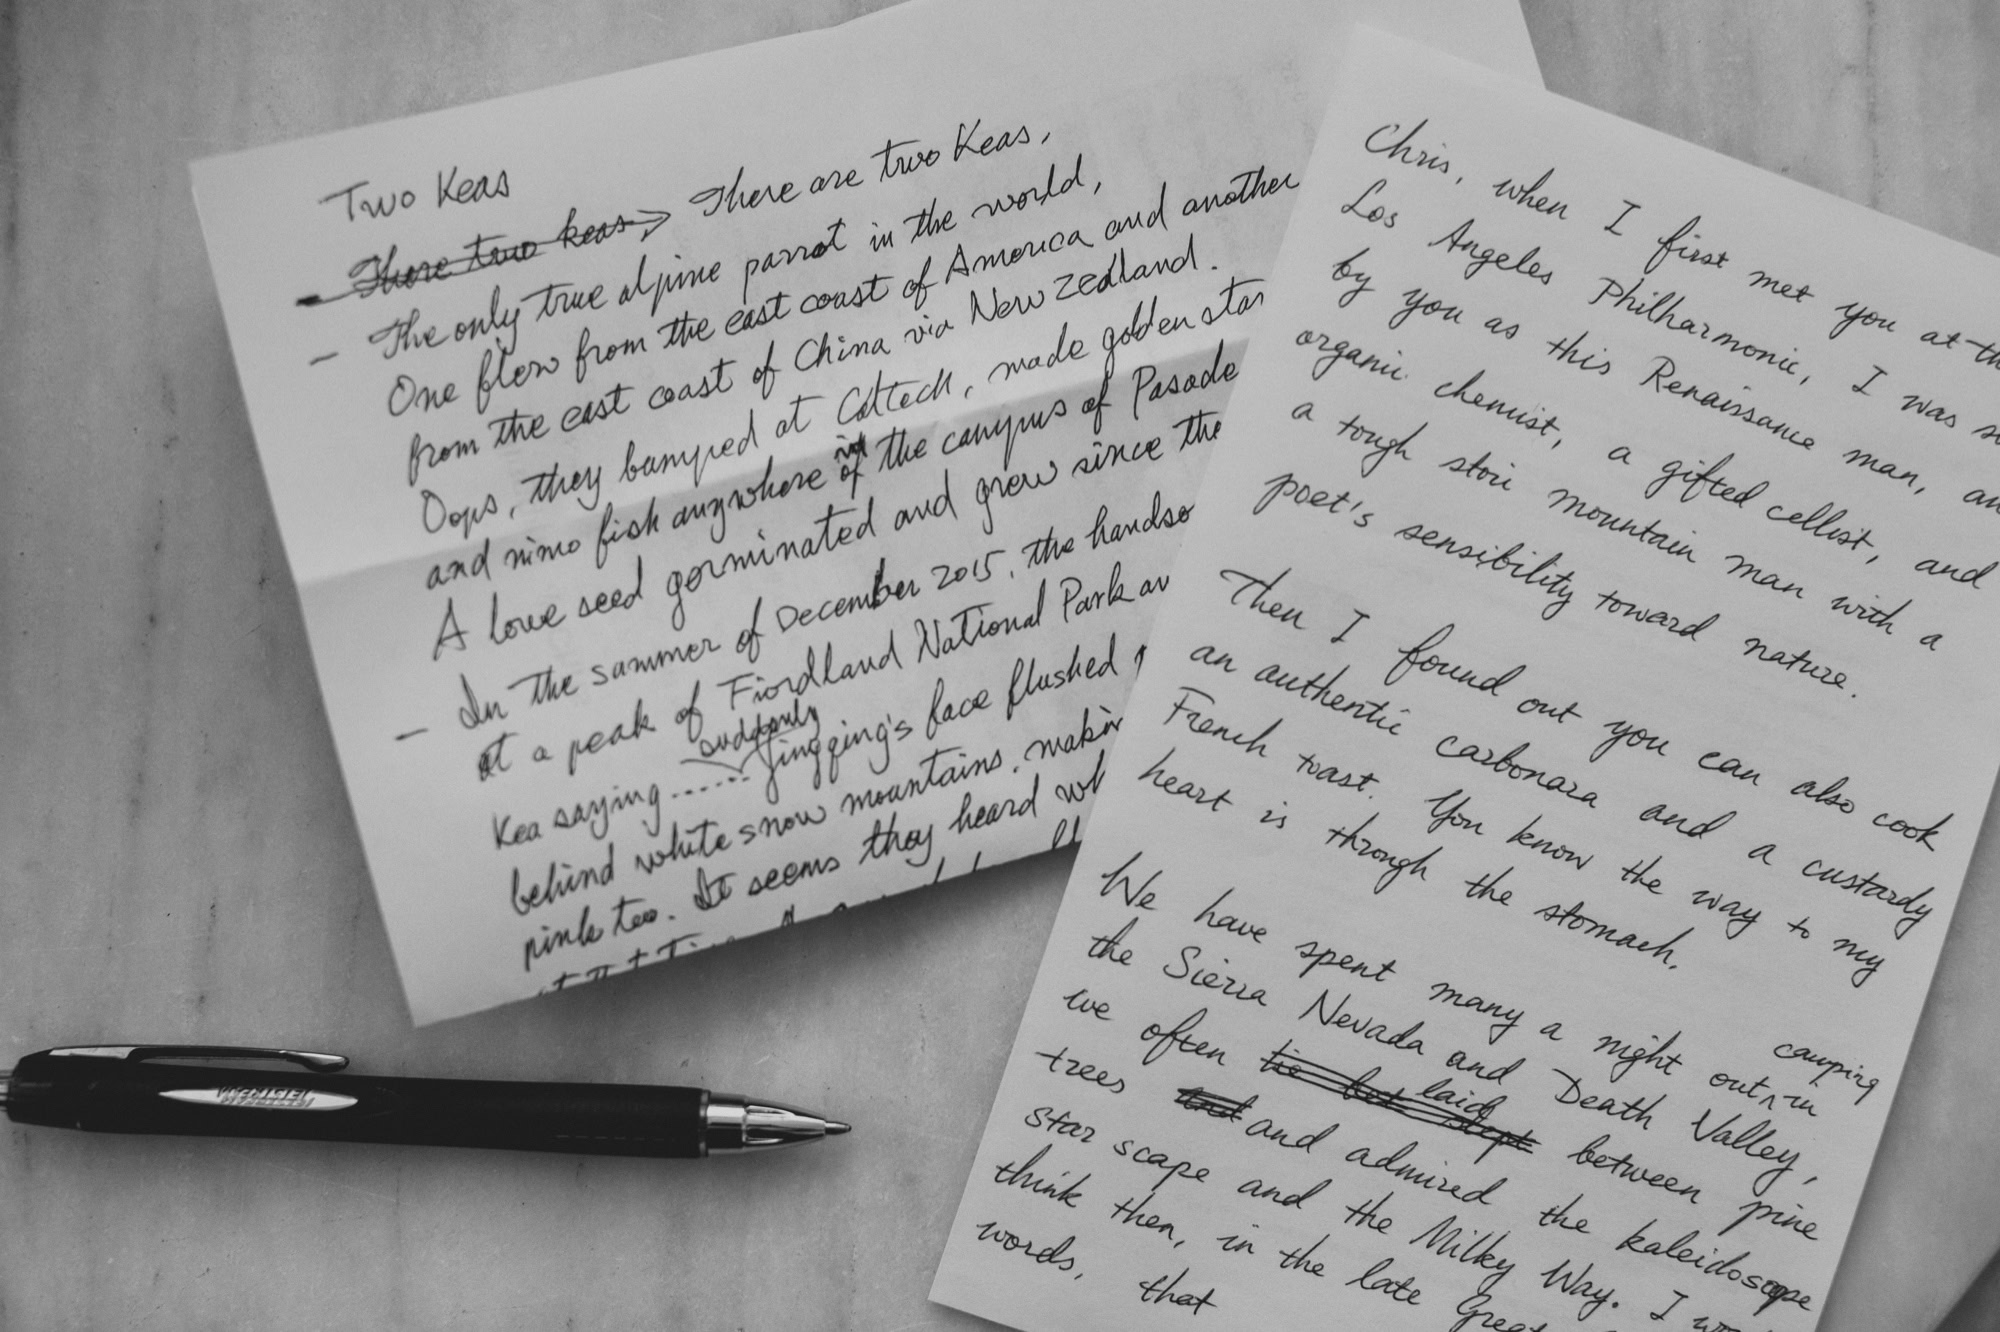 Two Keas
There two keas, There are two Keas,
The only true alpine parrot in the world,
One flew from the east coast of America and another
from the east coast of China via New Zealand.
Oops, they bumped at Caltech, made golden star
and nimo fish anywhere in of the campus of Pasade
A love seed germinated and grew since the
In the summer of December 2015, the handso
at a peak of Fiordland National Park
suddenly
Kea saying ...... Jingjing's face flushed
behind white snow mountains, makin
pink too. It seems they heard wh
at that
Chris, when I first met you at th
Los Angeles Philharmonic, I was
by you as this Renaissance man, an
organic chemist, a gifted cellist, and
a tough stoic mountain man with a
poet's sensibility toward nature.
Then I found out you can also cook
an authentic carbonara and a custardy
French toast. You know the way to my
heart is through the stomach.
We have spent many a night out ^ camping in
the Sierra Nevada and Death Valley,
we often lie but slept laid between pine
trees and and admired the kaleidoscope
star scape and the Milky Way. I wo
think then, in the late Great
words, that
JETSTREAM